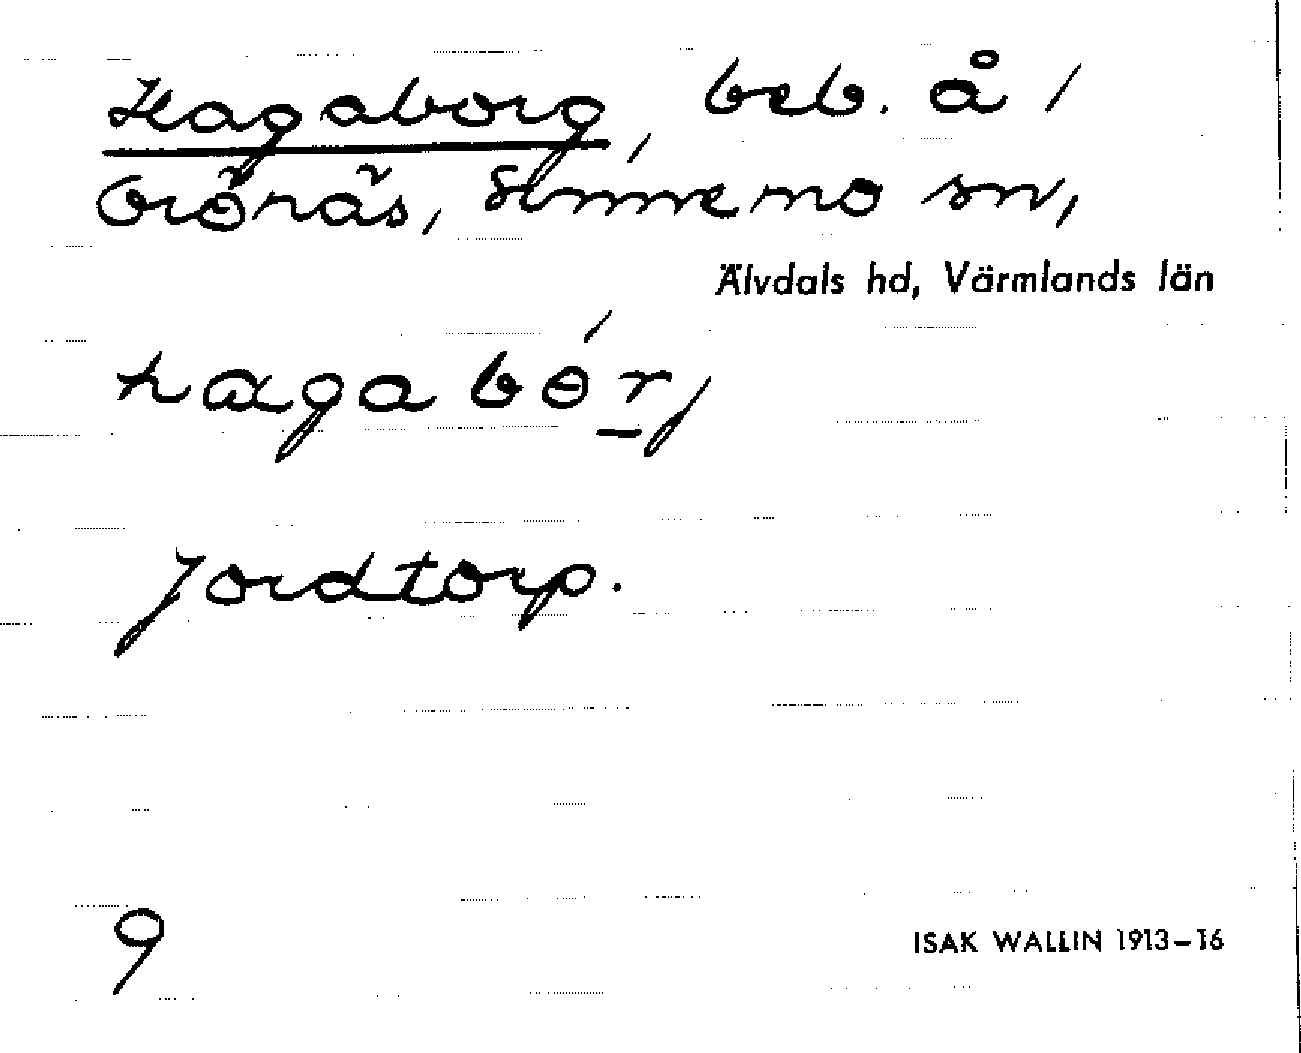 Hagaborg, beb. å /
Grönäs, Sunnemo sn,
Älvdals hd, Värmlands län
hɑgabɵ́r̲j
Jordtorp.
9
ISAK WALLIN 1913–16